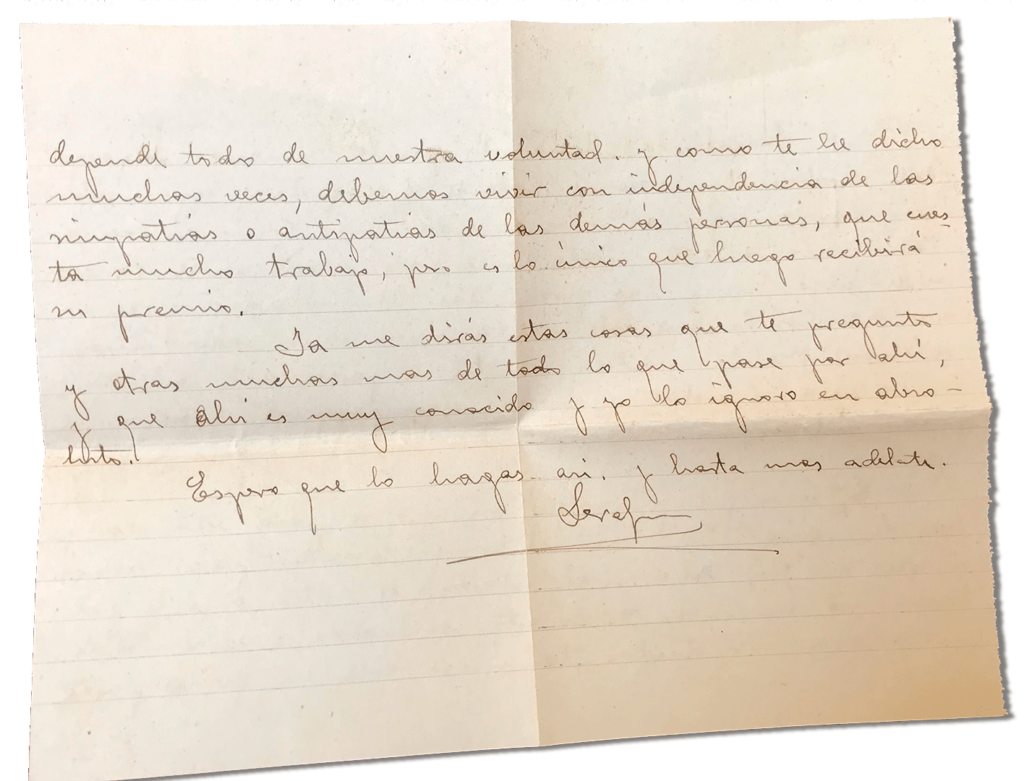 depende todo de nuestra voluntad. y como te he dicho
muchas veces, debemos vivir con independencia de las
simpatías o antipatías de las demás personas, que cues-
ta mucho trabajo, pero es lo único que luego recibirá
su premio.
Ya me dirás estas cosas que te pregunto
y otras muchas mas de todo lo que pase por ahí,
y que ahi es muy conocido y yo lo ignoro en abso-
luto.
Espero que lo hagas asi. y hasta mas adelate.
Serafin